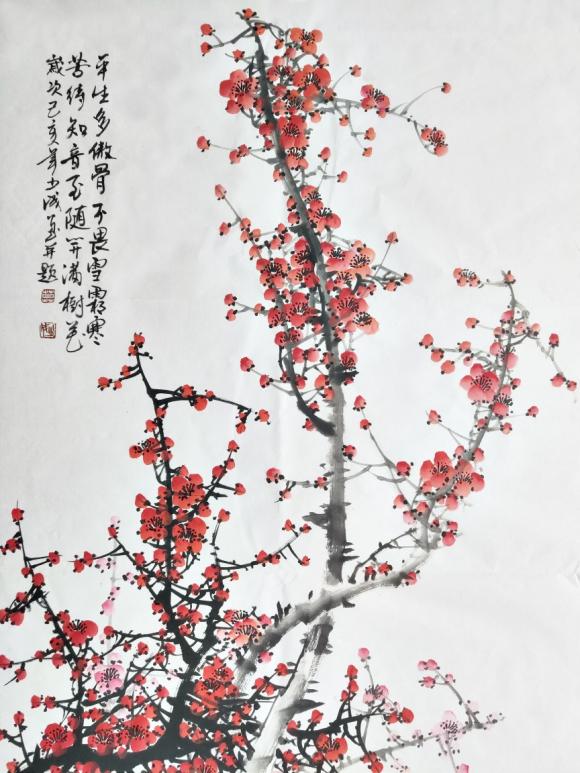 平生多傲骨不畏雪霜寒
苦待知音至随开满树花
岁次己亥年
并题